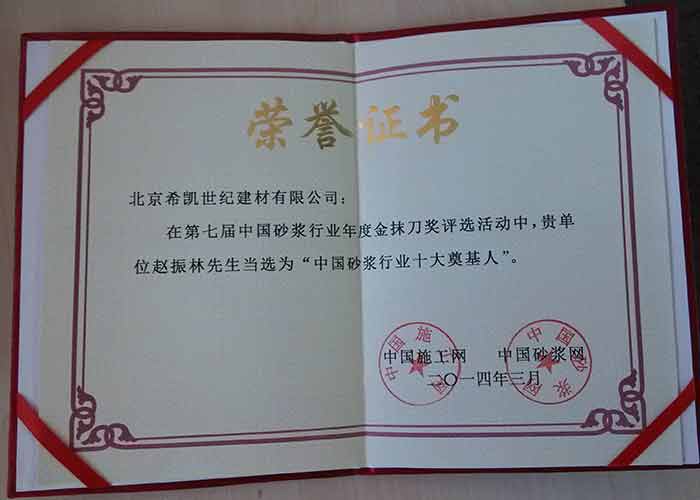 荣誉证书
北京希凯世纪建材有限公司：
在第七届中国砂浆行业年度金抹刀奖评选活动中，贵单
位赵振林先生当选为“中国砂浆行业十大奠基人”。
中国施工网 中国砂浆网
二〇一四年三月
中国施工网
中国砂浆网